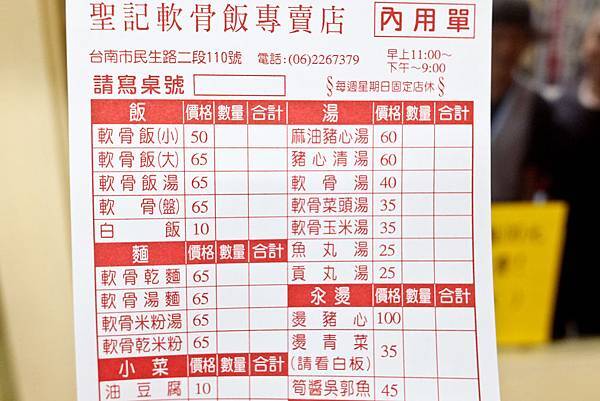 聖記軟骨飯專賣店 內用單
台南市民生路二段110號 電話:(06)2267379 早上11:00~
下午~9:00
請寫桌號 §每週星期日固定店休§
飯 價格 數量 合計
軟骨飯(小) 50
軟骨飯(大) 65
軟骨飯湯 65
軟骨(盤) 65
白飯 10
麵 價格 數量 合計
軟骨乾麵 65
軟骨湯麵 65
軟骨米粉湯 65
軟骨乾米粉 65
小菜 價格 數量 合計
油豆腐 10
湯 價格 數量 合計
麻油豬心湯 60
豬心清湯 60
軟骨湯 40
軟骨菜頭湯 35
軟骨玉米湯 35
魚丸湯 25
貢丸湯 25
汆燙 價格 數量 合計
燙豬心 100
燙青菜
(請看白板) 35
筍醬吳郭魚 45